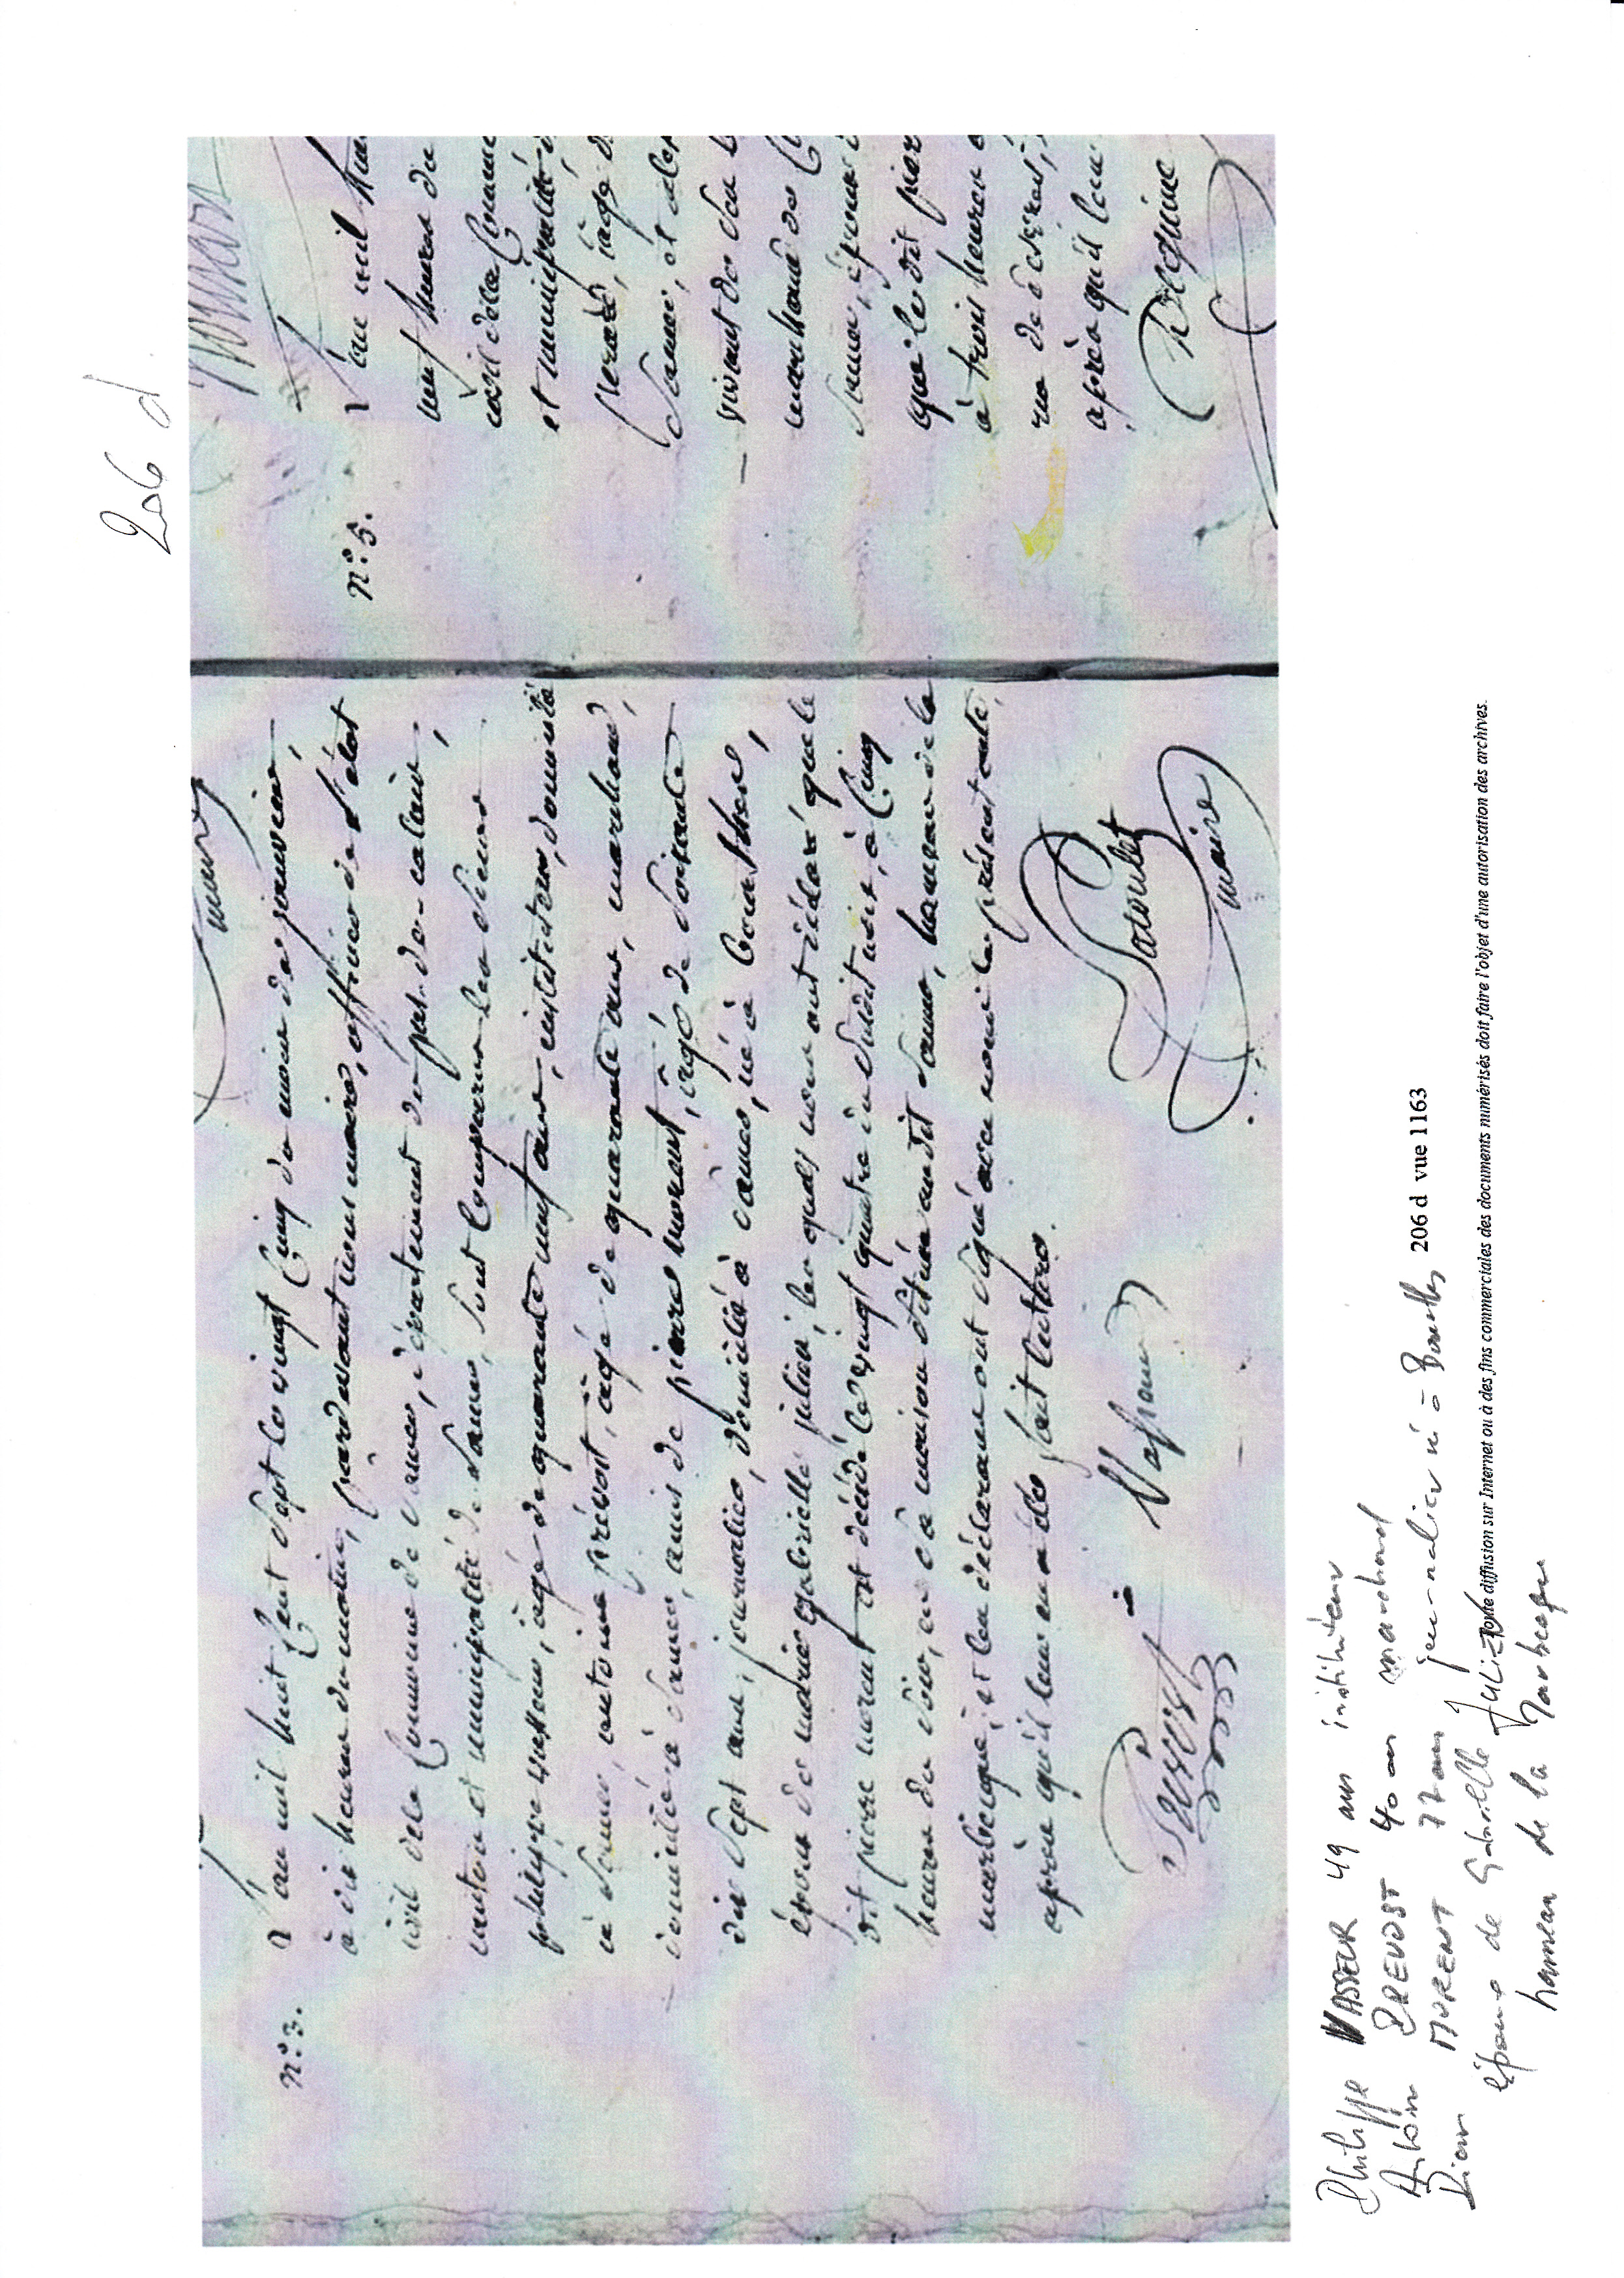 206 d
n.° 3.
L'an mil huit Cent Sept le vingt Cinq du mois de janvier,
à dix heures du matin, pardevant nous maire, officier de l'état
civil de la Commune de Samer, département du pas-de-calais,
canton et municipalité de Samer, Sont Comparus les Sieurs
philippe vasseur, âgé de quarante neuf ans, instituteur, domicilié
à Samer, antoine prévost, âgé de quarante ans, marchand,
domicilié à Samer, amis de pierre morent, âgé de Soixante
dix Sept ans, journalier, domicilié à Samer, né à Bourthes,
époux de marie gabrielle julien, les quels nous ont déclaré que le
dit pierre morent est décédé le vingt quatre du Susdit mois, à Cinq
heures du Soir, en Sa maison Située audit Samer, hameau de la
marbecque, et les déclarans ont Signé avec nous le présent acte,
après qu'il leur en a été fait lecture.
Prévost Vasseur
maire
n.° 5.
L'an mil huit
neuf heures du
civil de la Commune
et municipalité d
âgé d
Samer, et
vivant de Son
marchand de
Samer,
que le dit pier
à trois heures
après qu'il leur
Philippe VASSEUR 49 ans instituteur
Antoine PREVOST 40 ans marchand
Pierre MORENT 77 ans journalier né à Bourthes 206 d vue 1163
épouse de Gabrielle JULIEN
Toute diffusion sur Internet ou à des fins commerciales des documents numérisés doit faire l'objet d'une autorisation des archives.
hameau de la Marbecque